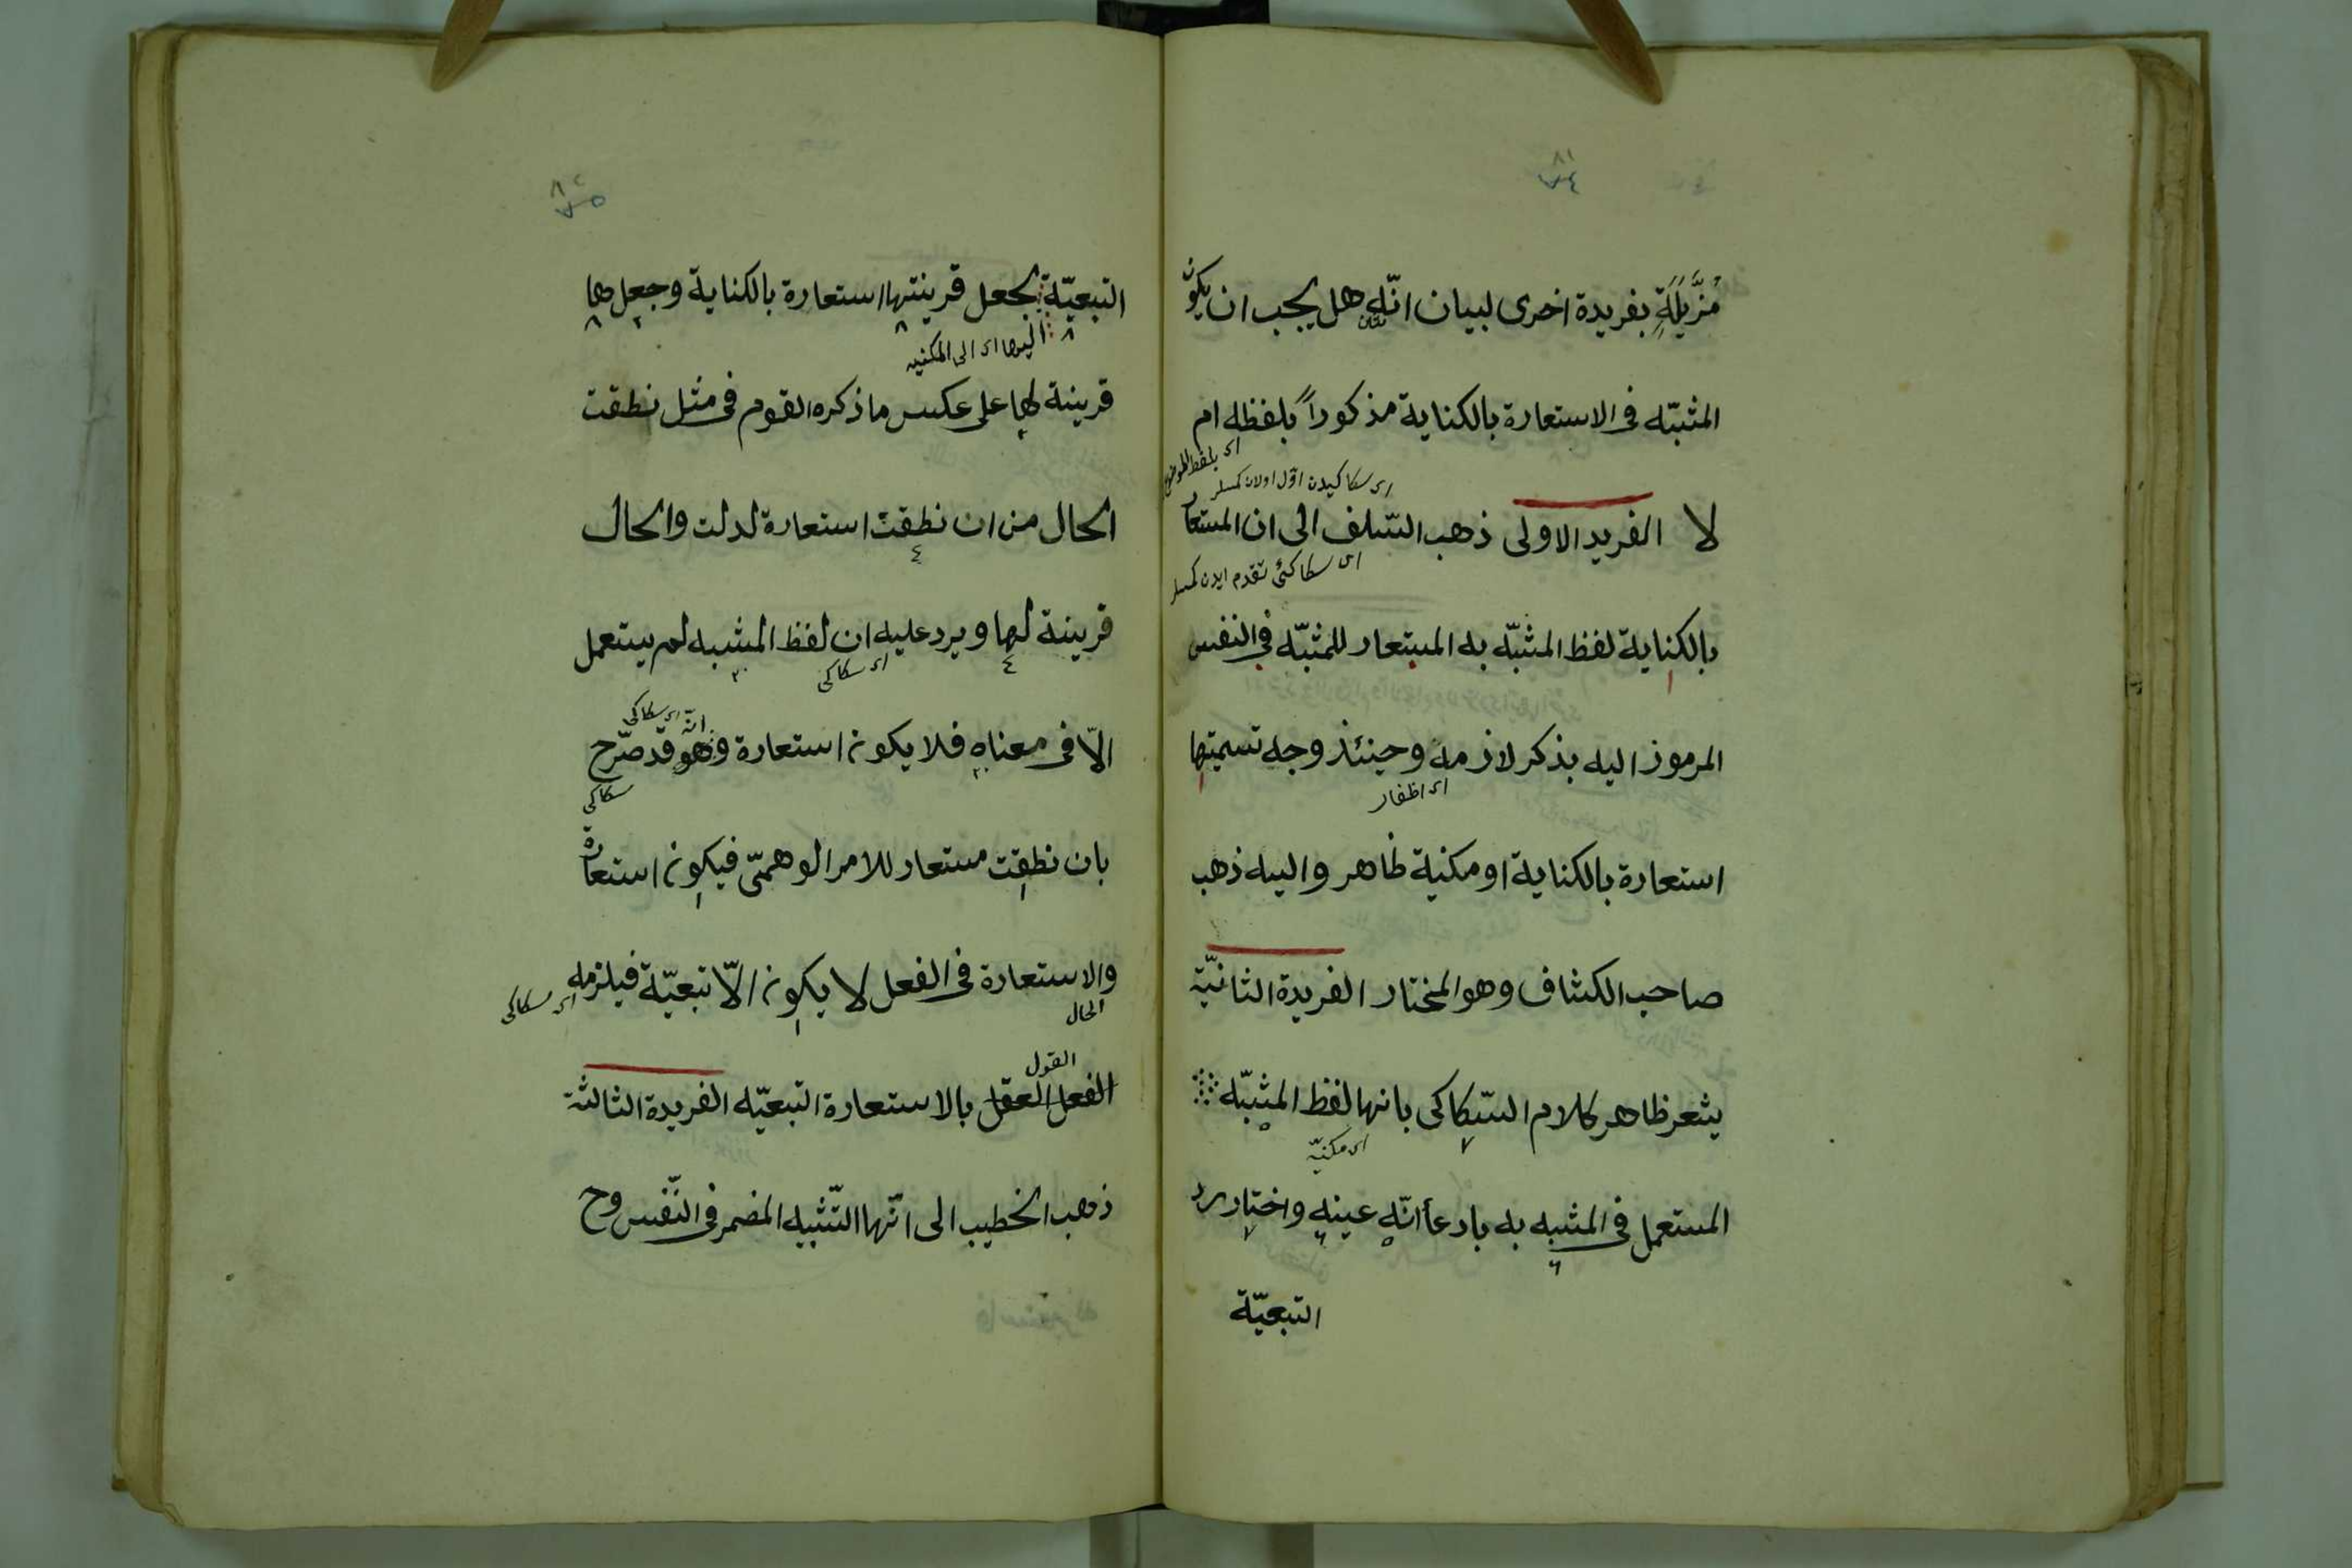 ٨١
٧٤
مُزَيَّلَةٍ بفريدة اخرى لبيان انّه هل يجب ان يكون
المشبّه فى الاستعارة بالكناية مذكوراً بلفظه ام
اى بلفظ الموضوع
اى سكاكيدن اوّل اولان كمسلر
لا الفريد الاولى ذهب السّلف الى ان المستعار
اى سكاكئ تقدم ايدن كمسلر
بالكناية لفظ المشبّه به المستعار للمشبّه فى النفس
المرموز اليه بذكر لازمه وحينئذ وجه تسميتها
اى اظفار
استعارة بالكناية او مكنية ظاهر واليه ذهب
صاحب الكشاف وهو المختار الفريدة الثانيّة
يشعر ظاهر كلام السّكاكى بانها لفظ المشبّه
اى مكنيّه
المستعمل فى المشبه به بادعأ انّه عينه واختار رد
التبعيّة
٨٢
٧٥
التبعيّة بجعل قرينتها استعارة بالكناية وجعلها
اليها اى الى المكنيه
قرينة لها على عكس ما ذكره القوم فى مثل نطقت
الحال من ان نطقت استعارة لدلت والحال
قرينة لها ويرد عليه ان لفظ المشبه لم يستعمل
اى سكاكى
الّا فى معناه فلا يكون استعارة وهو قد صرّح
انّه اى سكاكى
سكاكى
بان نطقت مستعار للامر الوهمىّ فيكون استعارة
والاستعارة فى الفعل لا يكون الّا تبعيّة فيلزمه
الحال
اى سكاكى
القول
الفعل العقل بالاستعارة التبعيّه الفريدة الثالثة
ذهب الخطيب الى انّها التّشبيه المضمر فى النّفس وح